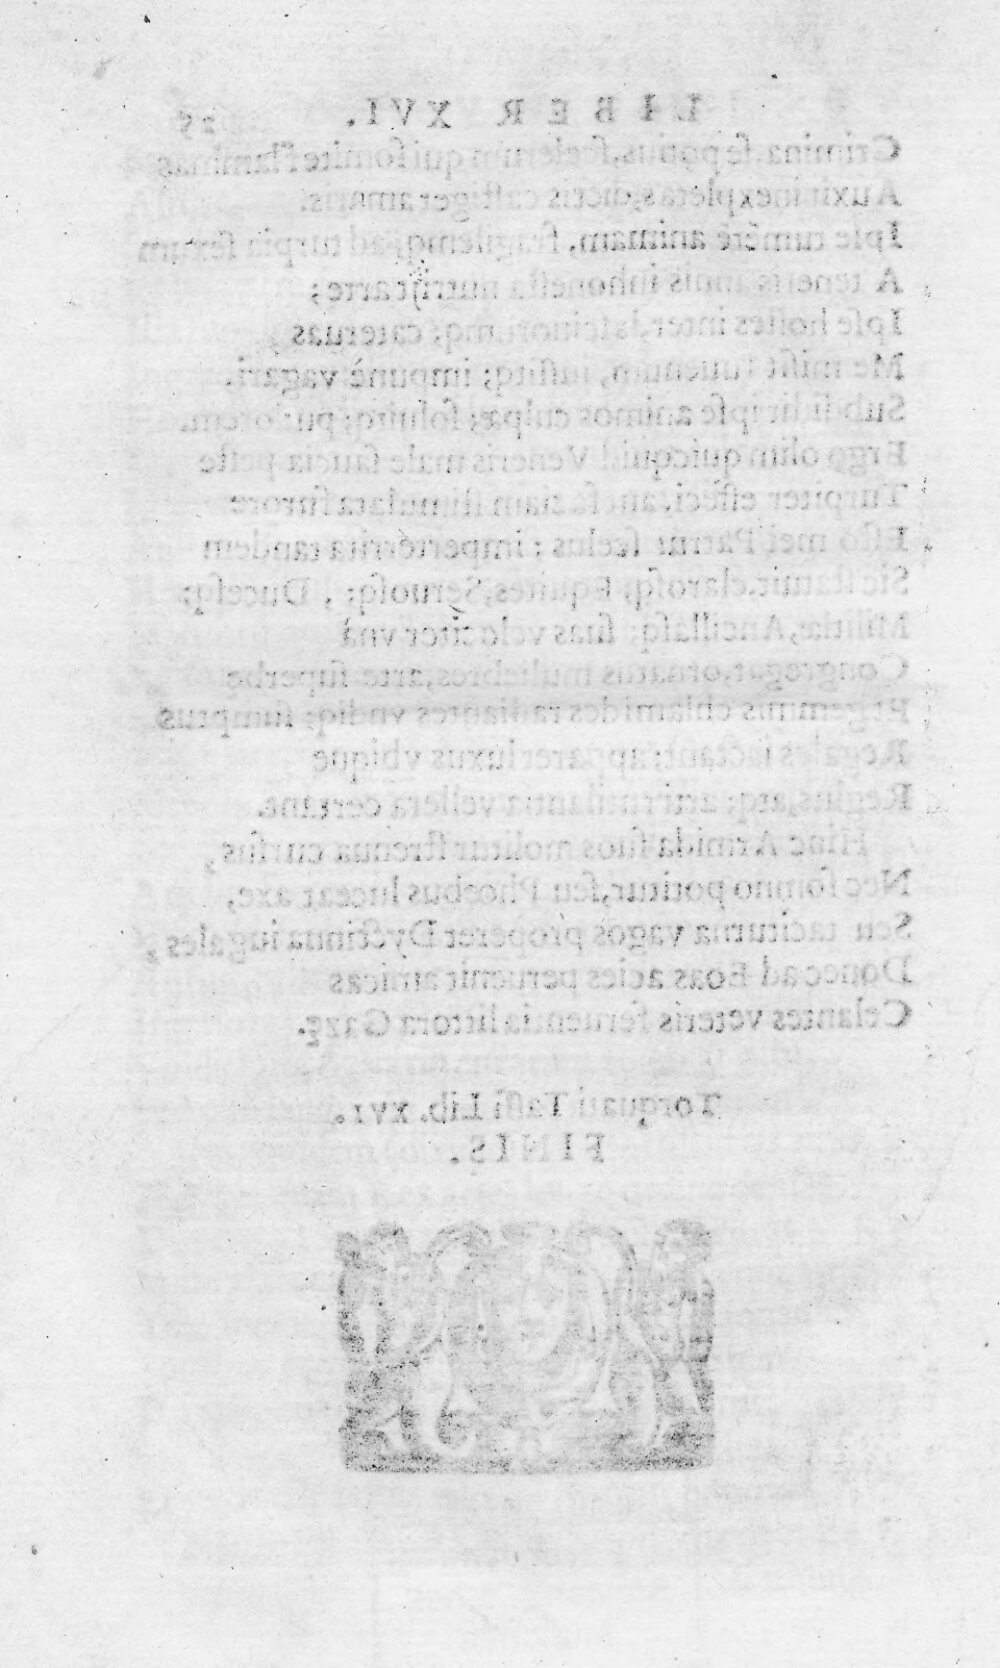 LIBER XVI.
Crimina qui fomite flammas
Auxit inexpletas, castiget amaris.
Ipse animam, ad turpia sexum
A teneris annis inhonesta nutrijt arte;
Ipse hostes inter, cateruas
Me misit iussitq; impunè vagari.
Subdidit ipse animos culpæ; soluitq; pudorem.
Ergo olim quicquid Veneris male saucia peste
Turpiter effeci, stimulata furore
Esto mei Patrui scelus: imperterrita tandem
Sic statuit, clarosq; Equites, Seruosq; , Ducesq;
Militiæ, Ancillasq; suas velociter vnà
Congregat, ornatus muliebres, arte superbe
Et gemmis chlamides radiantes vndiq; sumptus
Regales iactant; apparet luxus vbique
Regius, atq; auri rutilantia vellera certant.
Hinc Armida suos molitur strenua cursus,
Nec somno potitur, seu Phœbus luceat axe,
Seu taciturna vagos properet Dyctinna iugales,
Donec ad Eoas acies peruenit amicas
Celantes veteris feruentia littora Gazę.
Torquati Tassi Lib. XVI.
FINIS.